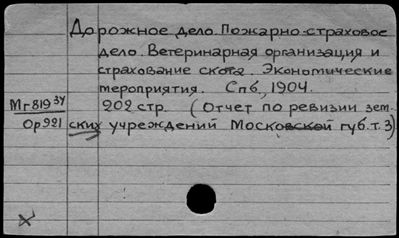 Дорожное дело. Пожарно-страховое
дело. Ветеринарная организация и
страхование скота. Экономические
мероприятия. Спб, 1904.
Мг819³⁴ 202 стр. (Отчет по ревизии зем-
Ор921 ских учреждений Московской губ. т. 3)